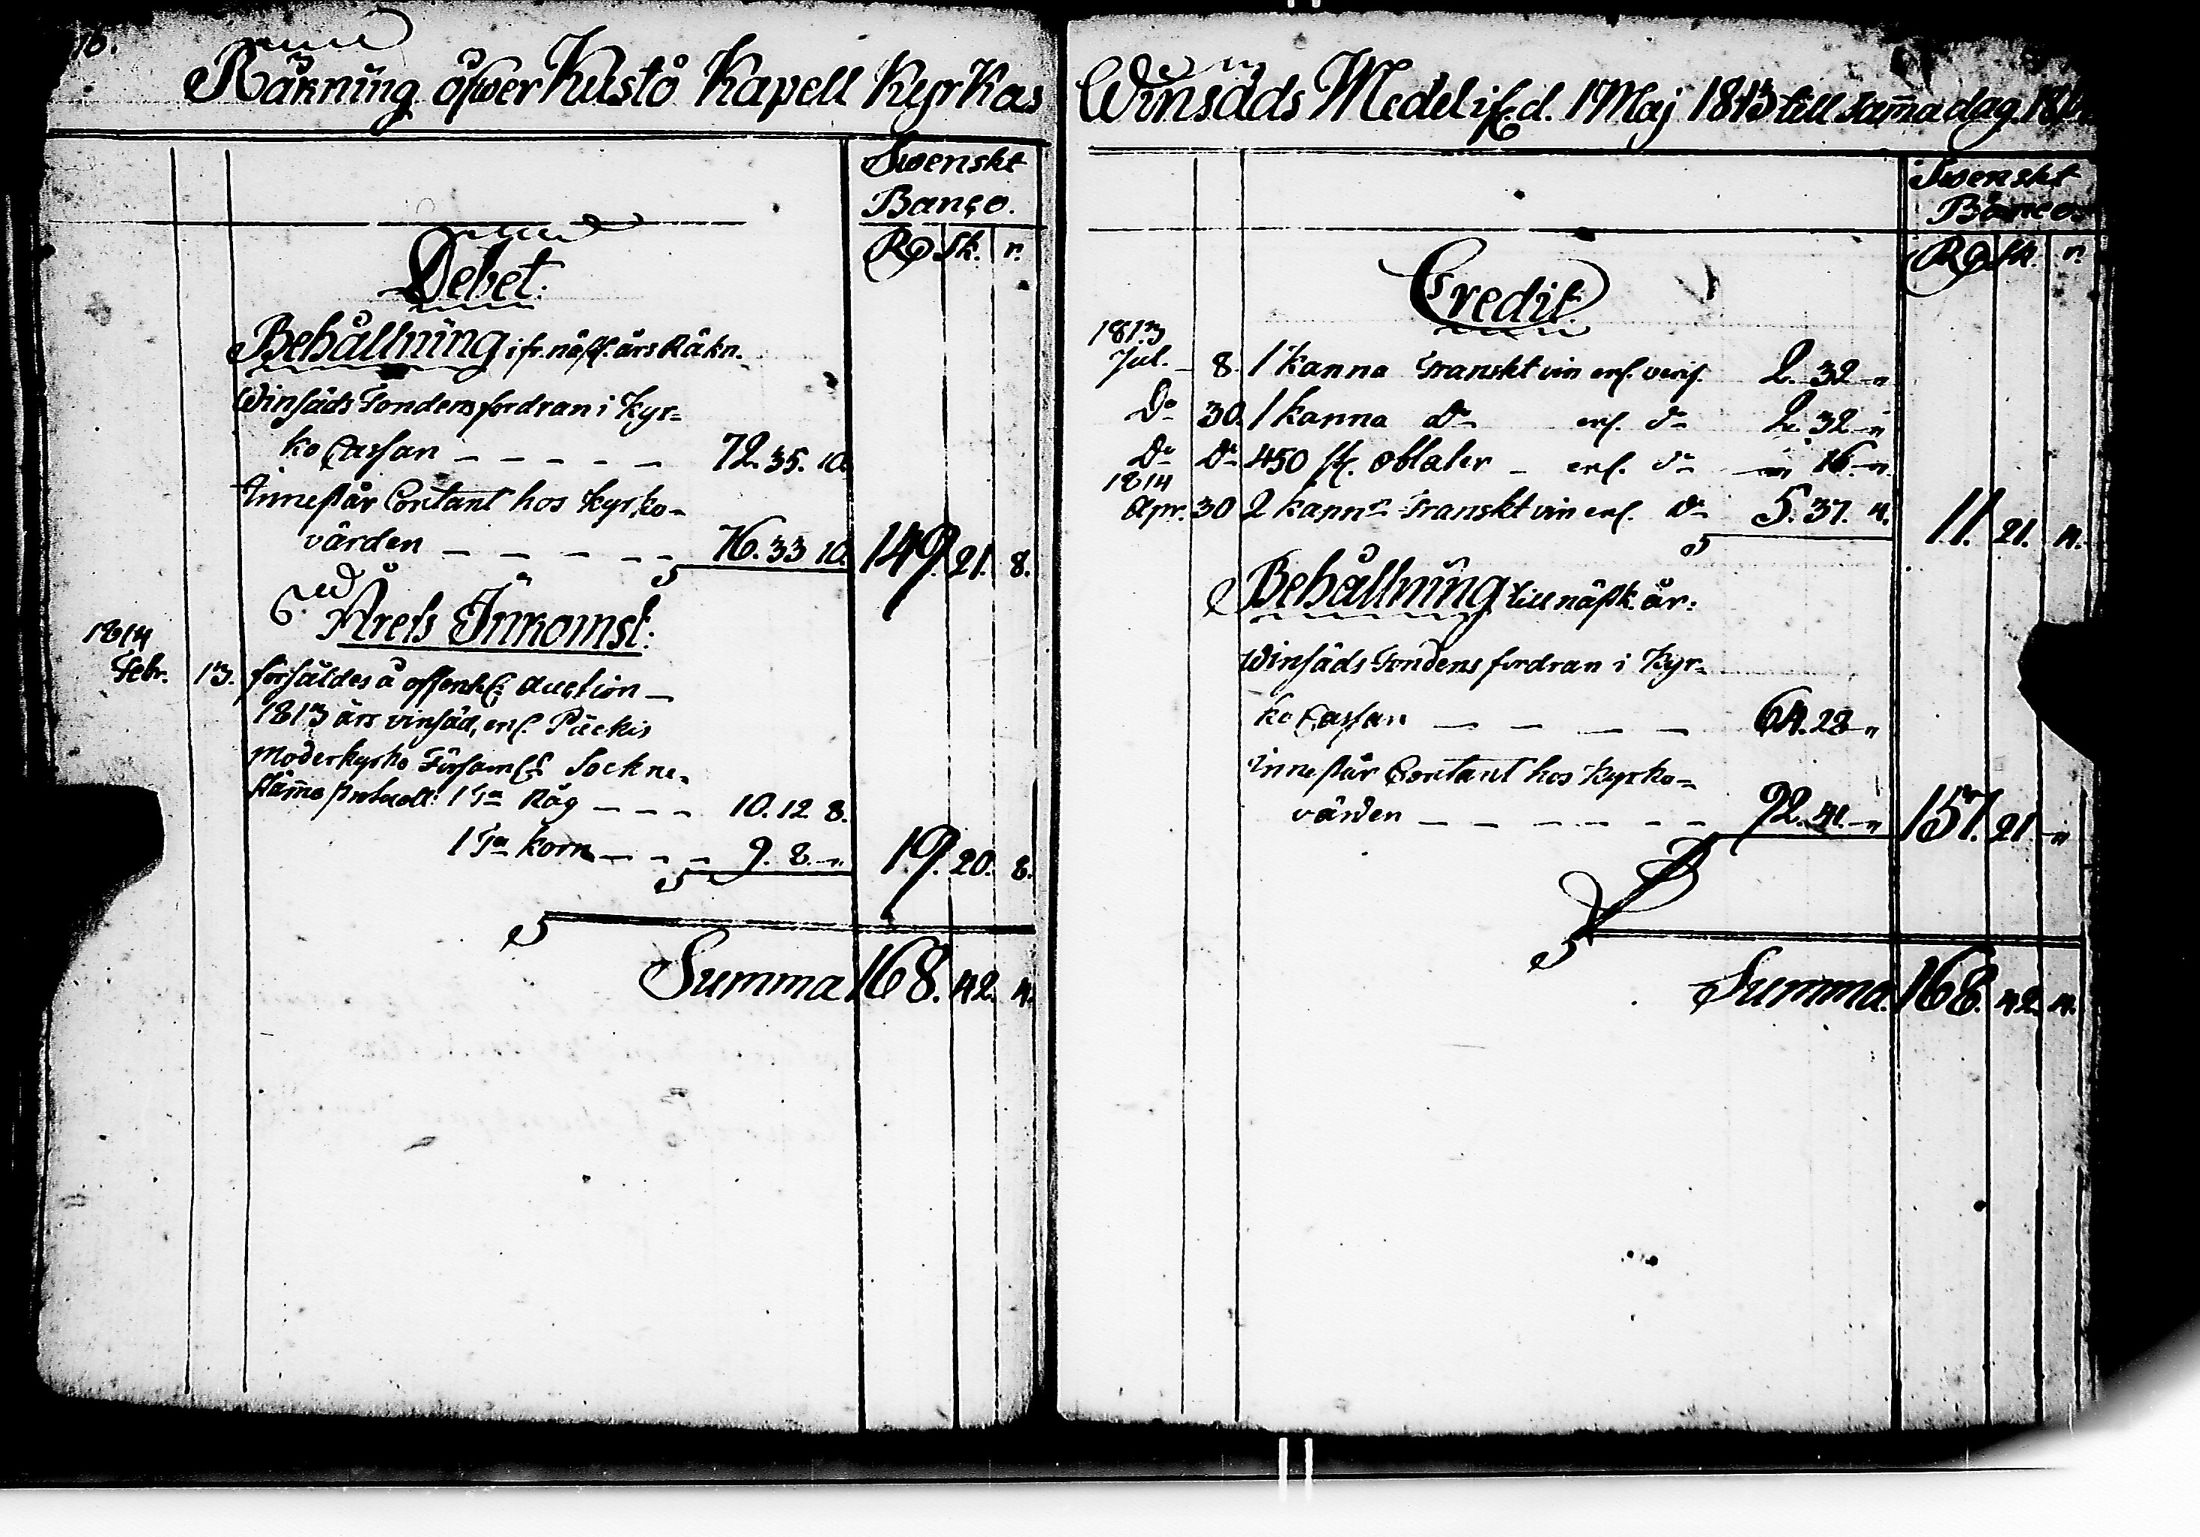 16.
Räkning öfwer Kustö Kapell Kyrkas
Swenskt
Banco.
Rd Sk. r.
Debet:
Behållning ifr. näst. års Räkn.
Winsäds Fondens fordran i Kyr=
ko Cassan — — — — — 72. 35. 10.
Innestår Contant hos Kyrko=
värden — — — — — 76. 33 10. 149. 21. 8.
Årets Inkomst:
1814
Febr. 13. försåldes å offentl: auction —
1813 års vinsäd, enl. Piickis
Moderkyrko Församl:s Sockne=
stämmo protocoll: 1 Ta Råg — — — 10. 12. 8.
1 Ta Korn — — — 9. 8. " 19. 20. 8.
Summa 168. 42. 4.
Winsäds Medel ifr. d. 1 Maj 1813 till samma dag
Swenskt
Banco.
Rd Sk. r.
Credit
1813
Jul. — 8. 1 kanna Franskt vin enl. verif. 2. 32 "
Do 30. 1 kanna do enl. do 2. 32 "
Do Do 450 st. oblater — enl. do " 16 "
1814
Apr. 30 2 kannr Franskt vin enl. do 5. 37. 4. 11. 21. 4.
Behållning till näst. år:
Winsäds Fondens fordran i Kyr=
ko Cassan — — — — — 64. 28 "
Innestår Contant hos Kyrko=
värden — — — — — — 92. 41. " 157. 21. "
Summa. 168. 42. 4.